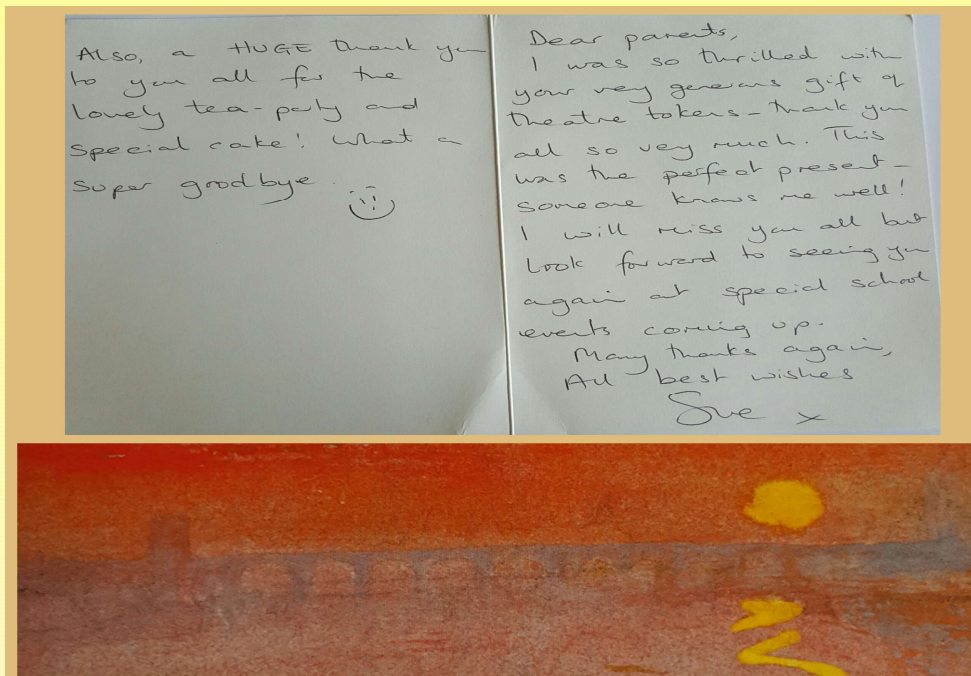 Also, a HUGE thank you
to you all for the
lovely tea-party and
special cake! What a
super goodbye.
Dear parents,
I was so thrilled with
your very generous gift of
theatre tokens - thank you
all so very much. This
was the perfect present -
someone knows me well!
I will miss you all but
look forward to seeing you
again at special school
events coming up.
Many thanks again,
All best wishes
Sue x